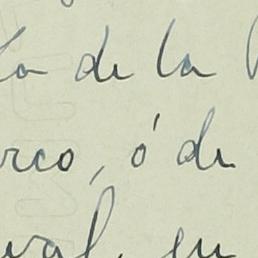 de la
rco, ó de
val, en